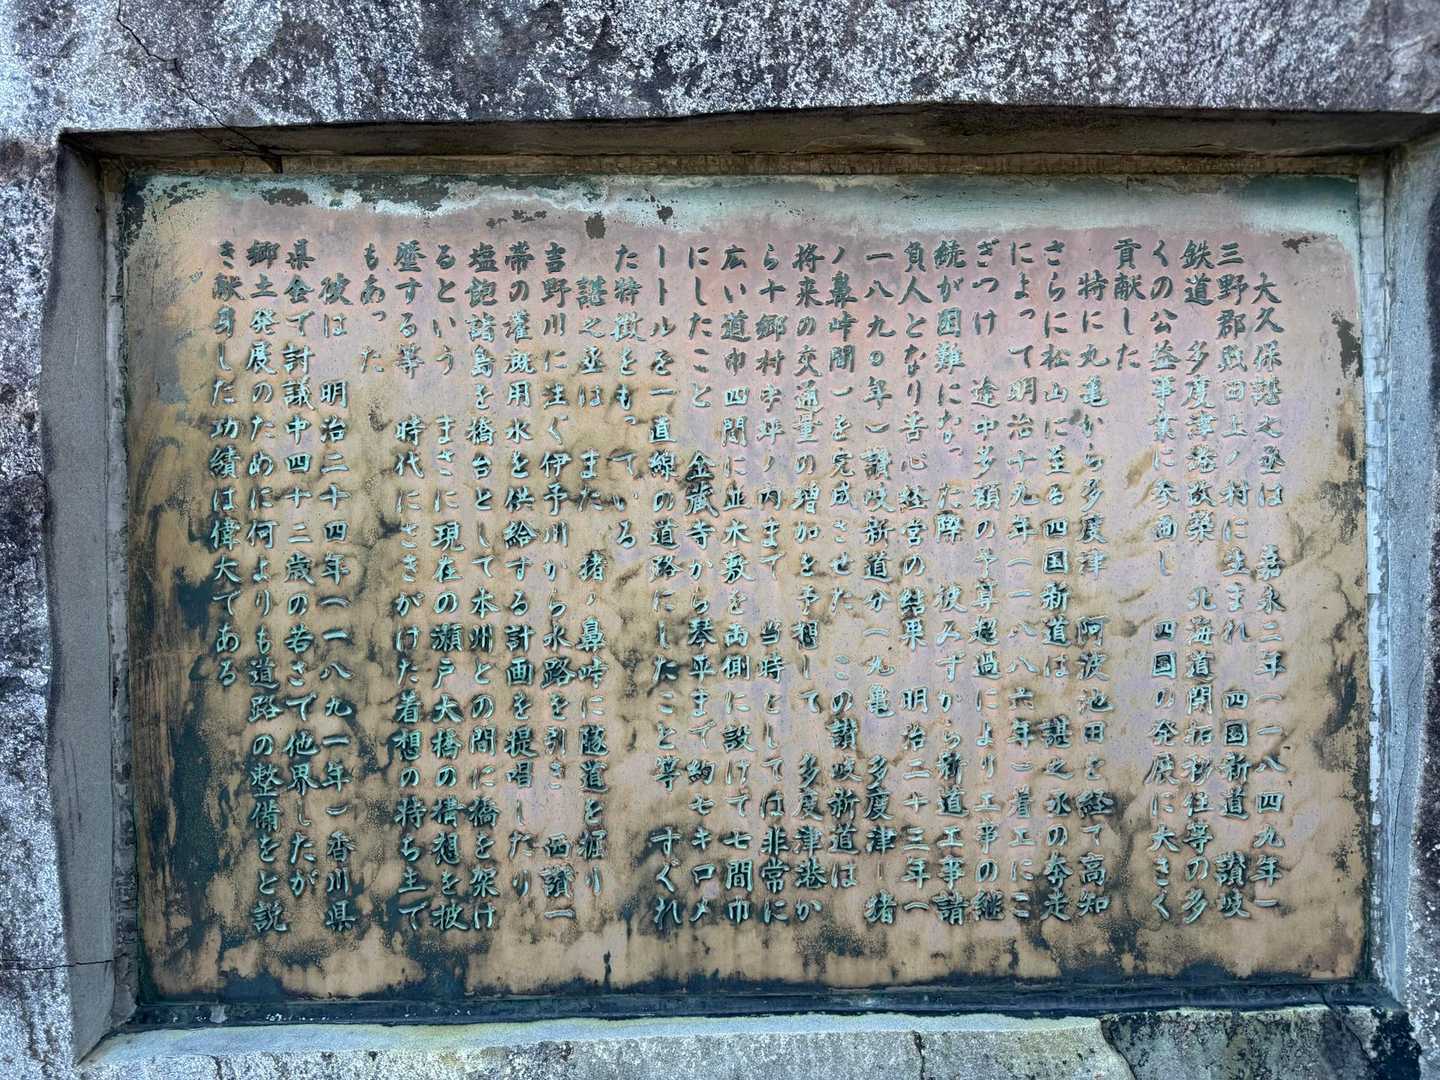 大久保諶之丞は　嘉永二年（一八四九年）
三野郡財田上ノ村に生まれ　四国新道　讃岐
鉄道　多度津港改築　北海道開拓移住等の多
くの公益事業に参画し　四国の発展に大きく
貢献した
特に丸亀から多度津　阿波池田を経て高知
さらに松山に至る四国新道は　諶之丞の奔走
によって明治十九年（一八八六年）着工にこ
ぎつけ　途中多額の予算超過により工事の継
続が困難になった際　彼みずから新道工事請
負人となり苦心経営の結果　明治二十三年（
一八九〇年）讃岐新道分（丸亀　多度津－猪
ノ鼻峠間）を完成させた　この讃岐新道は
将来の交通量の増加を予想して　多度津港か
ら十郷村字坪ノ内まで　当時としては非常に
広い道巾　四間に並木敷を両側に設けて七間巾
にしたこと　金蔵寺から琴平まで約七キロメ
ートルを一直線の道路にしたこと等　すぐれ
た特徴をもっている
諶之丞は　また　猪ノ鼻峠に隧道を掘り
吉野川に注ぐ伊予川から水路を引き　西讃一
帯の灌漑用水を供給する計画を提唱したり
塩飽諸島を橋台として本州との間に橋を架け
るという　まさに現在の瀬戸大橋の構想を披
歴する等　時代にさきがけた着想の持ち主で
もあった
彼は　明治二十四年（一八九一年）香川県
県会で討議中四十二歳の若さで他界したが
郷土発展のために何よりも道路の整備をと説
き献身した功績は偉大である